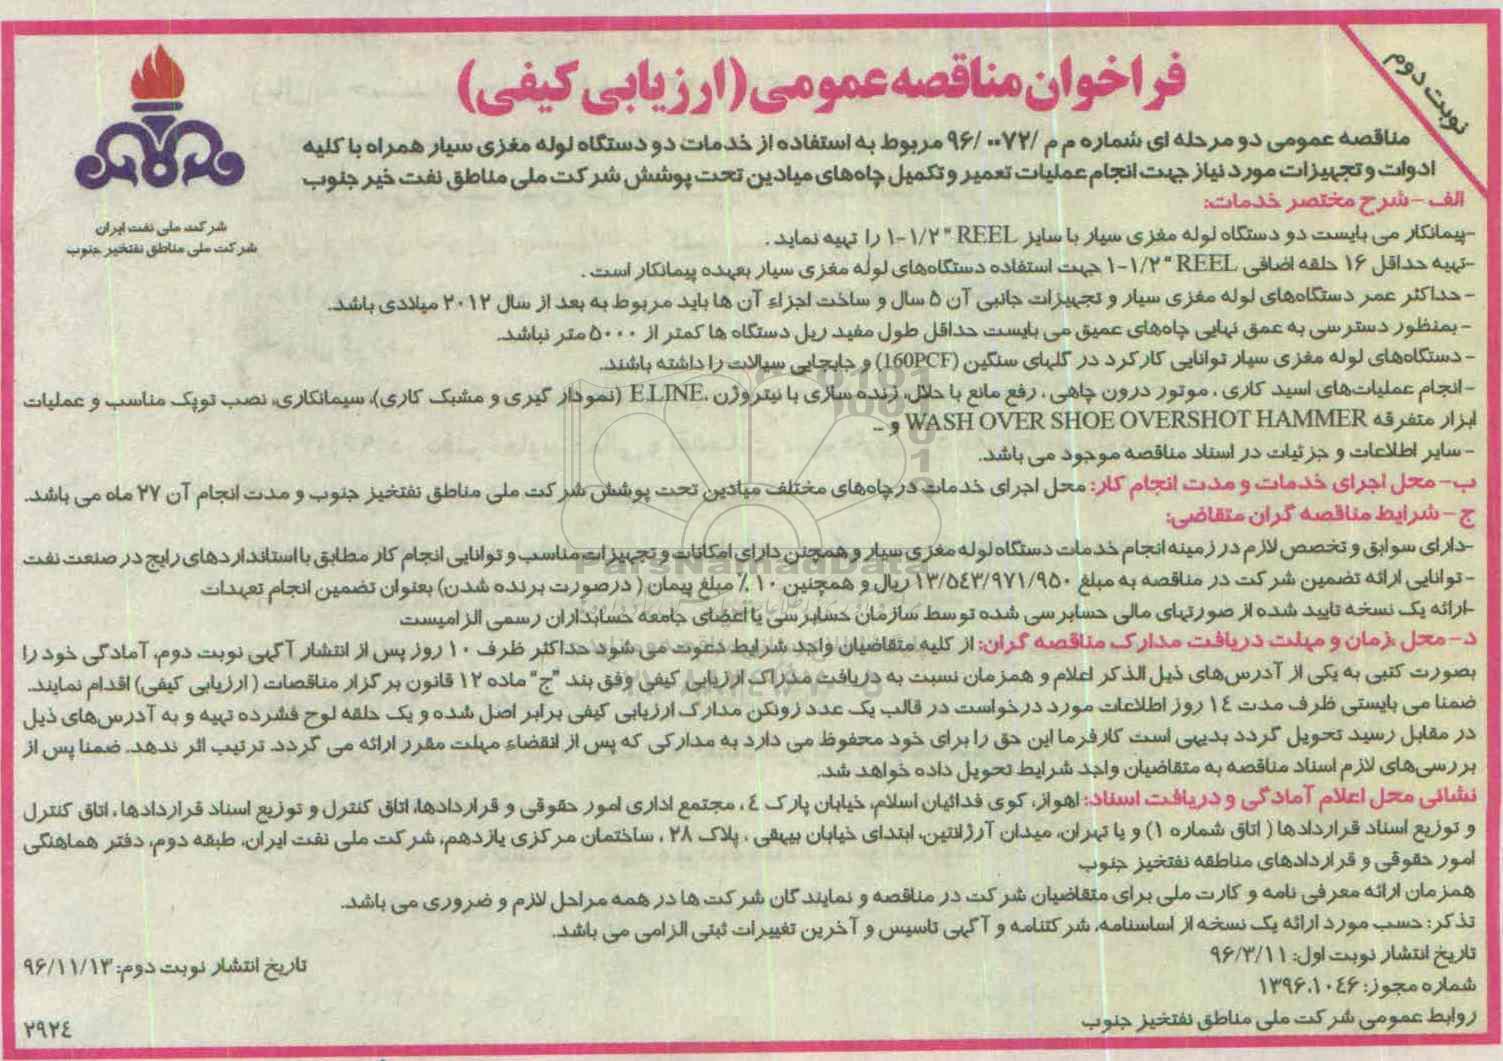 نوبت دوم
فراخوان مناقصه عمومی (ارزیابی کیفی)
مناقصه عمومی دو مرحله ای شماره م م /۰۰۷۲ /۹۶ مربوط به استفاده از خدمات دو دستگاه لوله مغزی سیار همراه با کلیه
ادوات و تجهیزات مورد نیاز جهت انجام عملیات تعمیر و تکمیل چاه‌های میادین تحت پوشش شرکت ملی مناطق نفت خیز جنوب
شرکت ملی نفت ایران
شرکت ملی مناطق نفتخیز جنوب
الف - شرح مختصر خدمات:
-پیمانکار می بایست دو دستگاه لوله مغزی سیار با سایز REEL "۱-۱/۲ را تهیه نماید .
-تهیه حداقل ۱۶ حلقه اضافی REEL "۱-۱/۲ جهت استفاده دستگاه‌های لوله مغزی سیار بعهده پیمانکار است .
- حداکثر عمر دستگاه‌های لوله مغزی سیار و تجهیزات جانبی آن ۵ سال و ساخت اجزاء آن ها باید مربوط به بعد از سال ۲۰۱۲ میلادی باشد.
- بمنظور دسترسی به عمق نهایی چاه‌های عمیق می بایست حداقل طول مفید ریل دستگاه ها کمتر از ۵۰۰۰ متر نباشد.
- دستگاه‌های لوله مغزی سیار توانایی کارکرد در گلهای سنگین (160PCF) و جابجایی سیالات را داشته باشند.
- انجام عملیات‌های اسید کاری ، موتور درون چاهی ، رفع مانع با حلال، زنده سازی با نیتروژن ،E.LINE (نمودار گیری و مشبک کاری)، سیمانکاری، نصب توپک مناسب و عملیات
ابزار متفرقه WASH OVER SHOE OVERSHOT HAMMER و ...
- سایر اطلاعات و جزئیات در اسناد مناقصه موجود می باشد.
ب- محل اجرای خدمات و مدت انجام کار: محل اجرای خدمات در چاه‌های مختلف میادین تحت پوشش شرکت ملی مناطق نفتخیز جنوب و مدت انجام آن ۲۷ ماه می باشد.
ج - شرایط مناقصه گران متقاضی:
-دارای سوابق و تخصص لازم در زمینه انجام خدمات دستگاه لوله مغزی سیار و همچنن دارای امکانات و تجهیزات مناسب و توانایی انجام کار مطابق با استانداردهای رایج در صنعت نفت
- توانایی ارائه تضمین شرکت در مناقصه به مبلغ ۱۳/۵۴۳/۹۷۱/۹۵۰ ریال و همچنین ۱۰ ٪ مبلغ پیمان ( درصورت برنده شدن) بعنوان تضمین انجام تعهدات
-ارائه یک نسخه تایید شده از صورتهای مالی حسابرسی شده توسط سازمان حسابرسی یا اعضای جامعه حسابداران رسمی الزامیست
د- محل ،زمان و مهلت دریافت مدارک مناقصه گران: از کلیه متقاضیان واجد شرایط دعوت می شود حداکثر ظرف ۱۰ روز پس از انتشار آگهی نوبت دوم، آمادگی خود را
بصورت کتبی به یکی از آدرس‌های ذیل الذکر اعلام و همزمان نسبت به دریافت مدراک ارزیابی کیفی وفق بند "ج" ماده ۱۲ قانون برگزار مناقصات ( ارزیابی کیفی) اقدام نمایند.
ضمنا می بایستی ظرف مدت ۱۴ روز اطلاعات مورد درخواست در قالب یک عدد زونکن مدارک ارزیابی کیفی برابر اصل شده و یک حلقه لوح فشرده تهیه و به آدرس‌های ذیل
در مقابل رسید تحویل گردد بدیهی است کارفرما این حق را برای خود محفوظ می دارد به مدارکی که پس از انقضاء مهلت مقرر ارائه می گردد. ترتیب اثر ندهد. ضمنا پس از
بررسی‌های لازم اسناد مناقصه به متقاضیان واجد شرایط تحویل داده خواهد شد.
نشانی محل اعلام آمادگی و دریافت اسناد: اهواز، کوی فدائیان اسلام، خیابان پارک ٤ ، مجتمع اداری امور حقوقی و قراردادها، اتاق کنترل و توزیع اسناد قراردادها ، اتاق کنترل
و توزیع اسناد قراردادها ( اتاق شماره ۱) و یا تهران، میدان آرژانتین، ابتدای خیابان بیهقی ، پلاک ۲۸ ، ساختمان مرکزی یازدهم، شرکت ملی نفت ایران، طبقه دوم، دفتر هماهنگی
امور حقوقی و قراردادهای مناطقه نفتخیز جنوب
همزمان ارائه معرفی نامه و کارت ملی برای متقاضیان شرکت در مناقصه و نمایندگان شرکت ها در همه مراحل لازم و ضروری می باشد.
تذکر: حسب مورد ارائه یک نسخه از اساسنامه، شرکتنامه و آگهی تاسیس و آخرین تغییرات ثبتی الزامی می باشد.
تاریخ انتشار نوبت اول: ۹۶/۳/۱۱
تاریخ انتشار نوبت دوم: ۹۶/۱۱/۱۳
شماره مجوز: ۱۳۹۶.۱۰٤۶
روابط عمومی شرکت ملی مناطق نفتخیز جنوب
۲۹۲٤
ParsNamadData